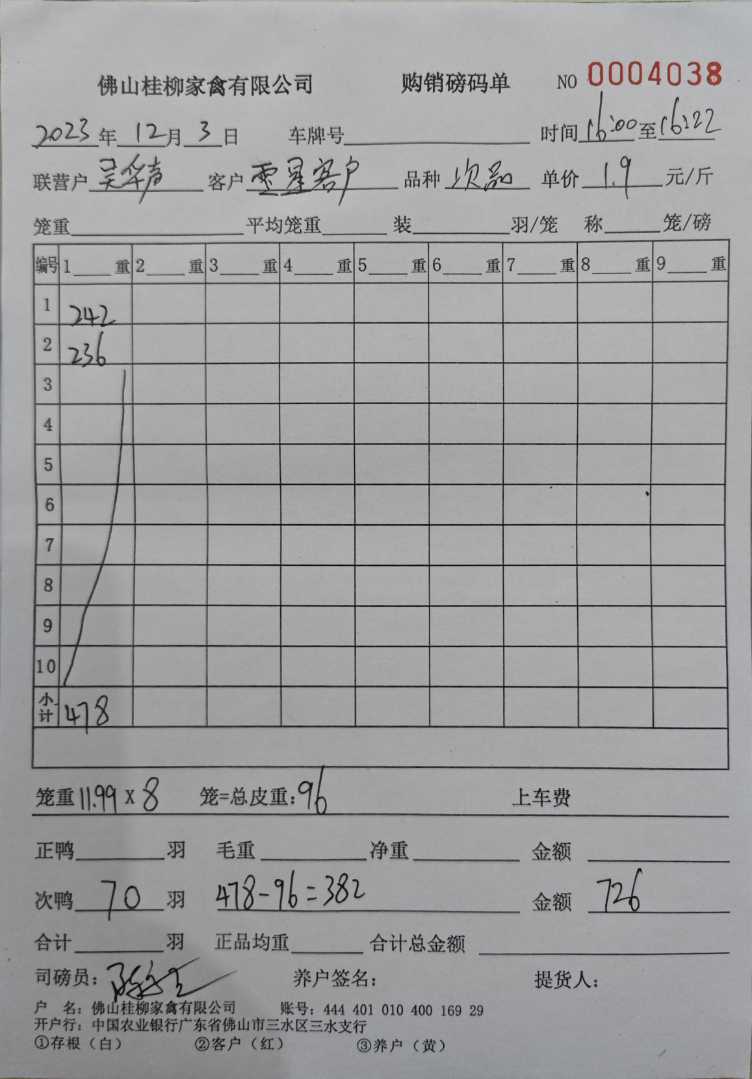 佛山桂柳家禽有限公司 购销磅码单 NO 0004038
2023年12月3日 车牌号 时间16:00至16:22
联营户 吴华声 客户 零星客户 品种 次品 单价 1.9 元/斤
笼重 平均笼重 装 羽/笼 称 笼/磅
编号 1 重 2 重 3 重 4 重 5 重 6 重 7 重 8 重 9 重
1 242
2 236
3
4
5
6
7
8
9
10
小计 478
笼重 11.99 X 8 笼=总皮重:96 上车费
正鸭 羽 毛重 净重 金额
次鸭 70 羽 478-96=382 金额 726
合计 羽 正品均重 合计总金额
司磅员: 养户签名: 提货人:
户 名: 佛山桂柳家禽有限公司 账号: 444 401 010 400 169 29
开户行: 中国农业银行广东省佛山市三水区三水支行
①存根(白) ②客户(红) ③养户(黄)